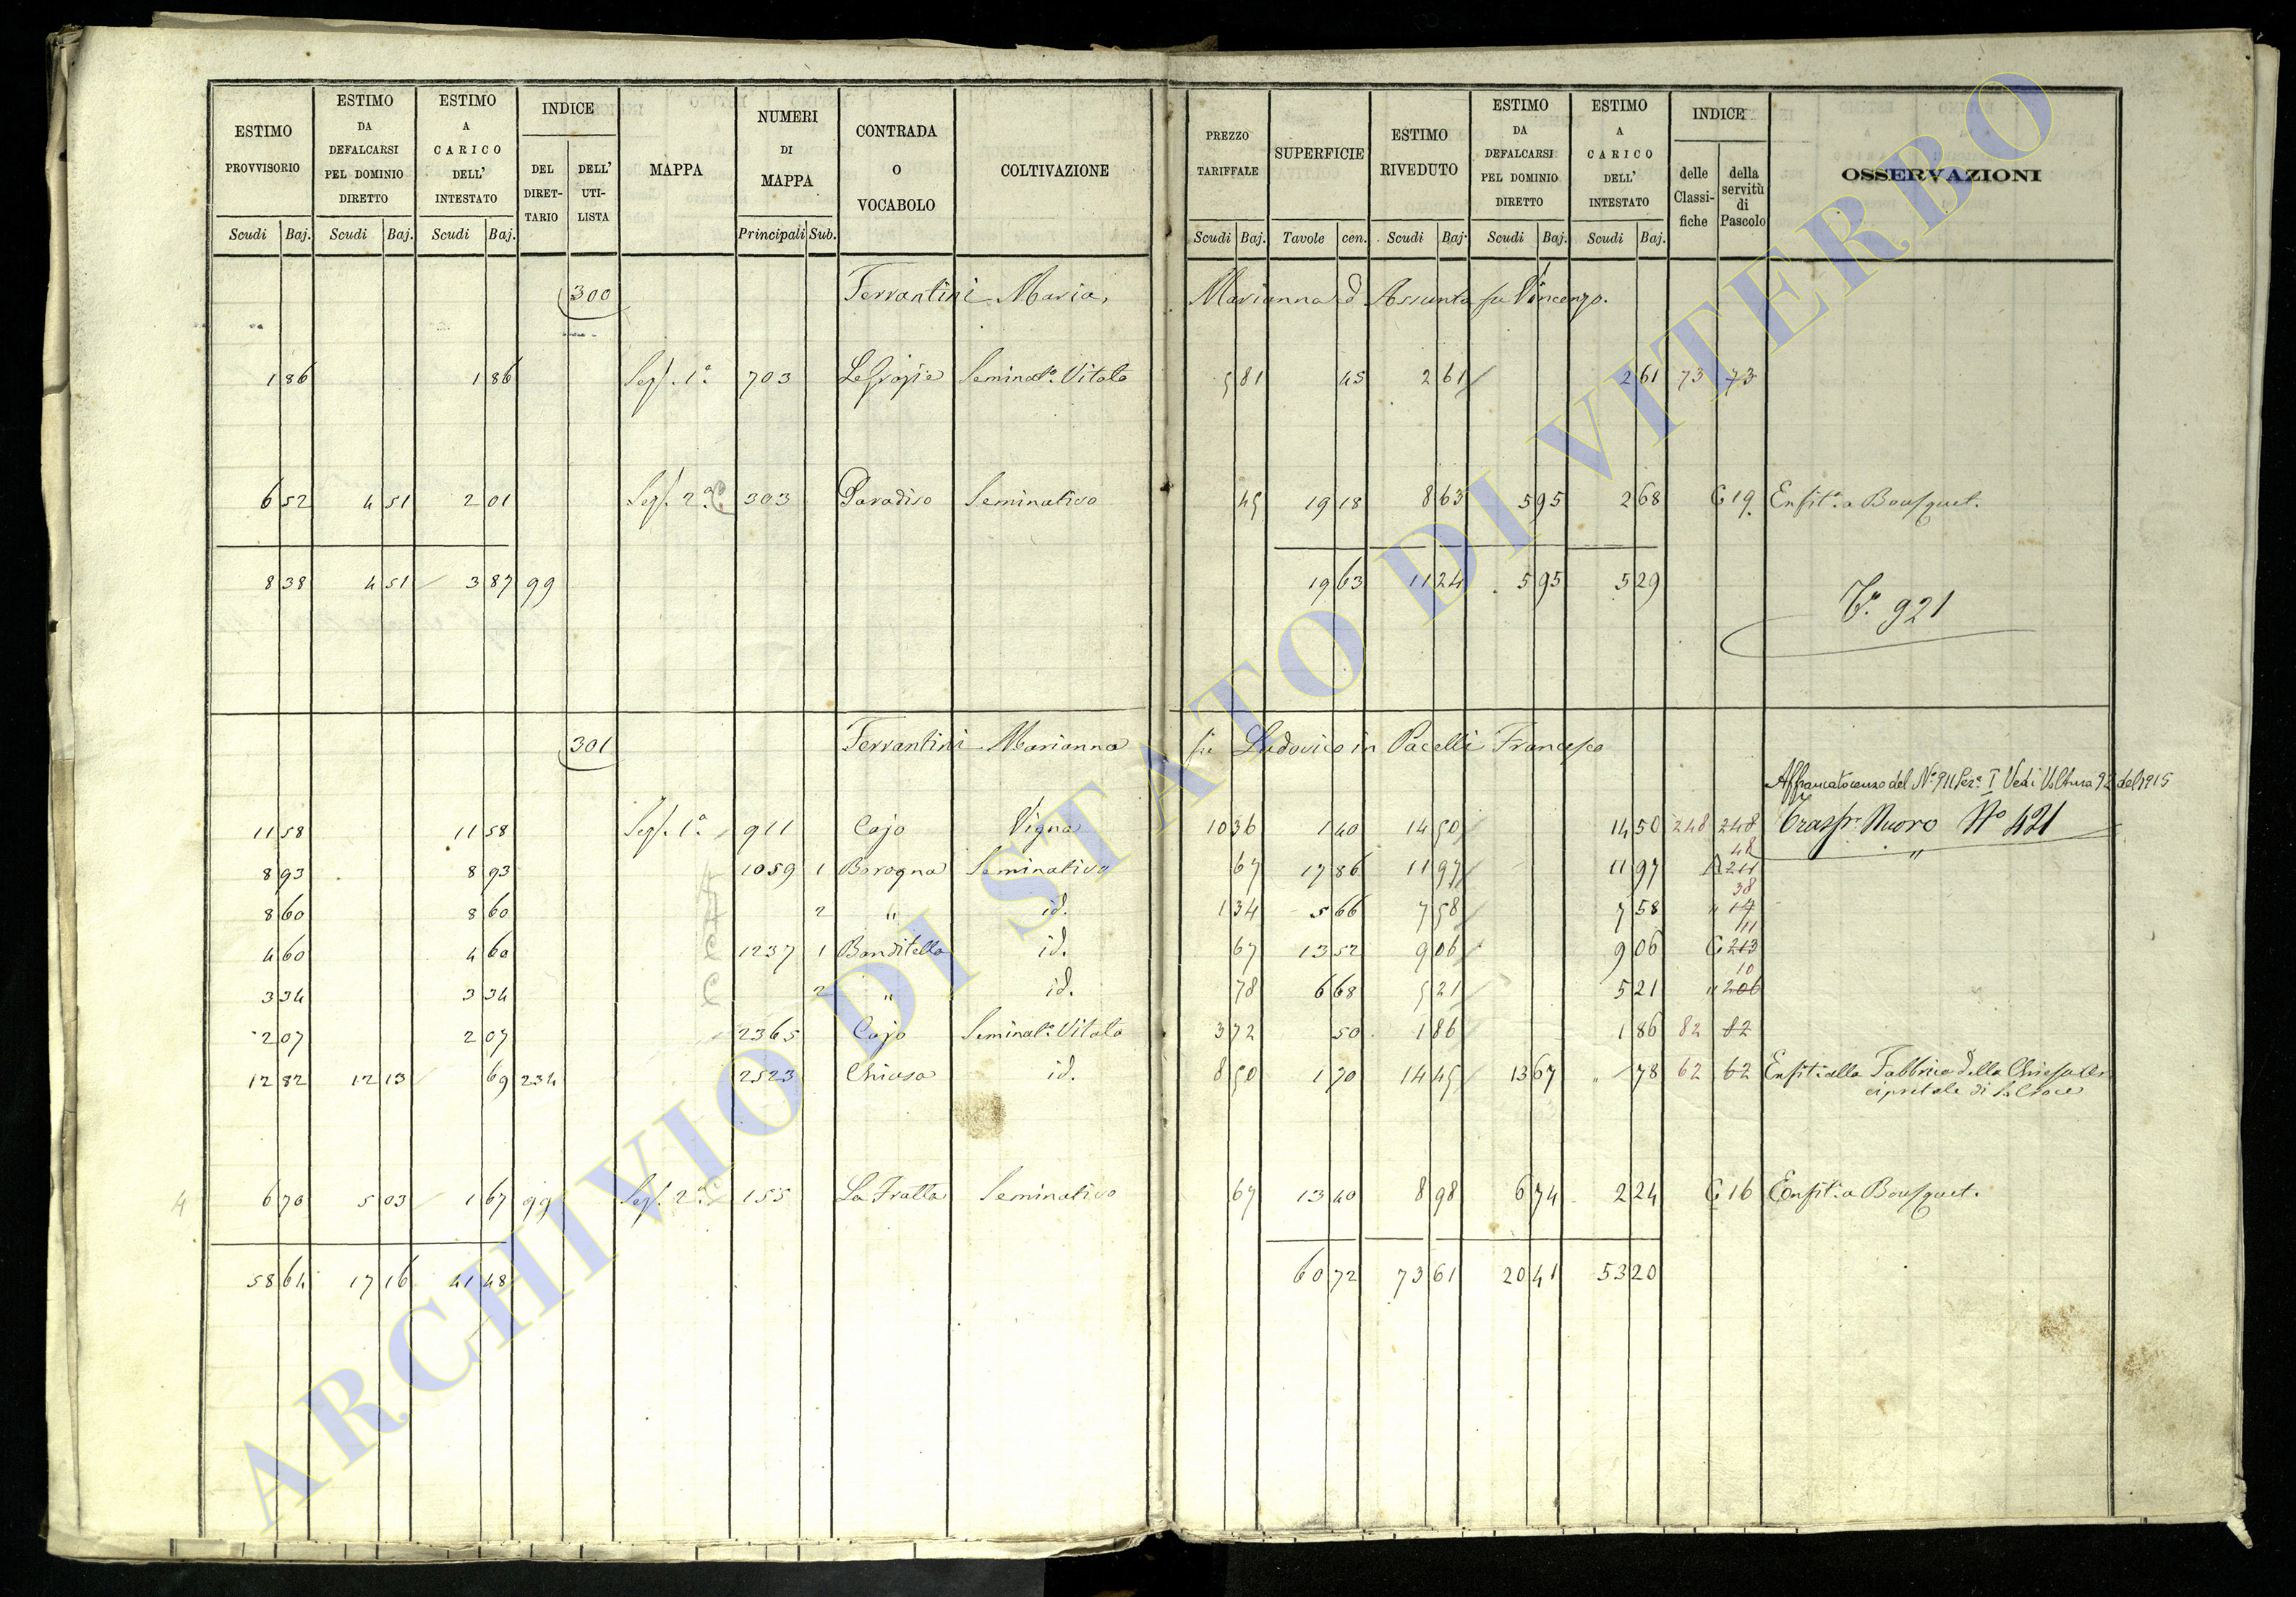 ESTIMO PROVVISORIO | ESTIMO DA DEFALCARSI PEL DOMINIO DIRETTO | ESTIMO A CARICO DELL' INTESTATO | INDICE | MAPPA | NUMERI DI MAPPA | CONTRADA O VOCABOLO | COLTIVAZIONE | PREZZO TARIFFALE | SUPERFICIE | ESTIMO RIVEDUTO | ESTIMO DA DEFALCARSI PEL DOMINIO DIRETTO | ESTIMO A CARICO DELL' INTESTATO | INDICE | OSSERVAZIONI
DEL DIRET-TARIO | DELL' UTI-LISTA | delle Classi-fiche | della servitù di Pascolo
Scudi | Baj. | Scudi | Baj. | Scudi | Baj. | Principali | Sub. | Scudi | Baj. | Tavole | cen. | Scudi | Baj. | Scudi | Baj. | Scudi | Baj.
300 Ferrantini Maria, Marianna ed Assunta fu Vincenzo.
1 86 | 1 86 | Sez. 1a. | 703 | Le Grazie | Seminato. Vitato | 5 81 | 45 | 2 61 | 2 61 | 73 | 73
6 52 | 4 51 | 2 01 | Sez. 2a. | 303 | Paradiso | Seminativo | 45 | 19 18 | 8 63 | 5 95 | 2 68 | C 19 | Enfita. a Bousquet.
8 38 | 4 51 | 3 87 | 99 | 19 63 | 11 24 | 5 95 | 5 29
921
301 Ferrantini Marianna fu Ludovico in Pacelli Francesco
Affrancato censo del No. 911 Sez. I Vedi Voltura 92 del 1915
11 58 | 11 58 | Sez. 1a. | 911 | Cajo | Vigna | 10 36 | 1 40 | 14 50 | 14 50 | 248 | 248 | Trasp. Nuovo No 421
8 93 | 8 93 | 1059 | 1 | Barogna | Seminativo | 67 | 17 86 | 11 97 | 11 97 | 48 | "
8 60 | 8 60 | 2 | " | id. | 1 34 | 5 66 | 7 58 | 7 58 | " | 38
4 60 | 4 60 | 1237 | 1 | Banditella | id. | 67 | 13 52 | 9 06 | 9 06 | C 213 | 11
3 34 | 3 34 | 2 | " | id. | 78 | 6 68 | 5 21 | 5 21 | " 206 | 10
2 07 | 2 07 | 2365 | Cajo | Seminato. Vitato | 3 72 | 50 | 1 86 | 1 86 | 82 | 82
12 82 | 12 13 | 69 | 234 | 2523 | Chiusa | id. | 8 50 | 1 70 | 14 45 | 13 67 | " 78 | 62 | 62 | Enfit. alla Fabbrica della Chiesa Ar
cipretale di S. Croce
6 70 | 5 03 | 1 67 | 99 | Sez. 2a. | 155 | La Fratta | Seminativo | 67 | 13 40 | 8 98 | 6 74 | 2 24 | C 16 | Enfita. a Bousquet.
58 64 | 17 16 | 41 48 | 60 72 | 73 61 | 20 41 | 53 20
ARCHIVIO DI STATO DI VITERBO